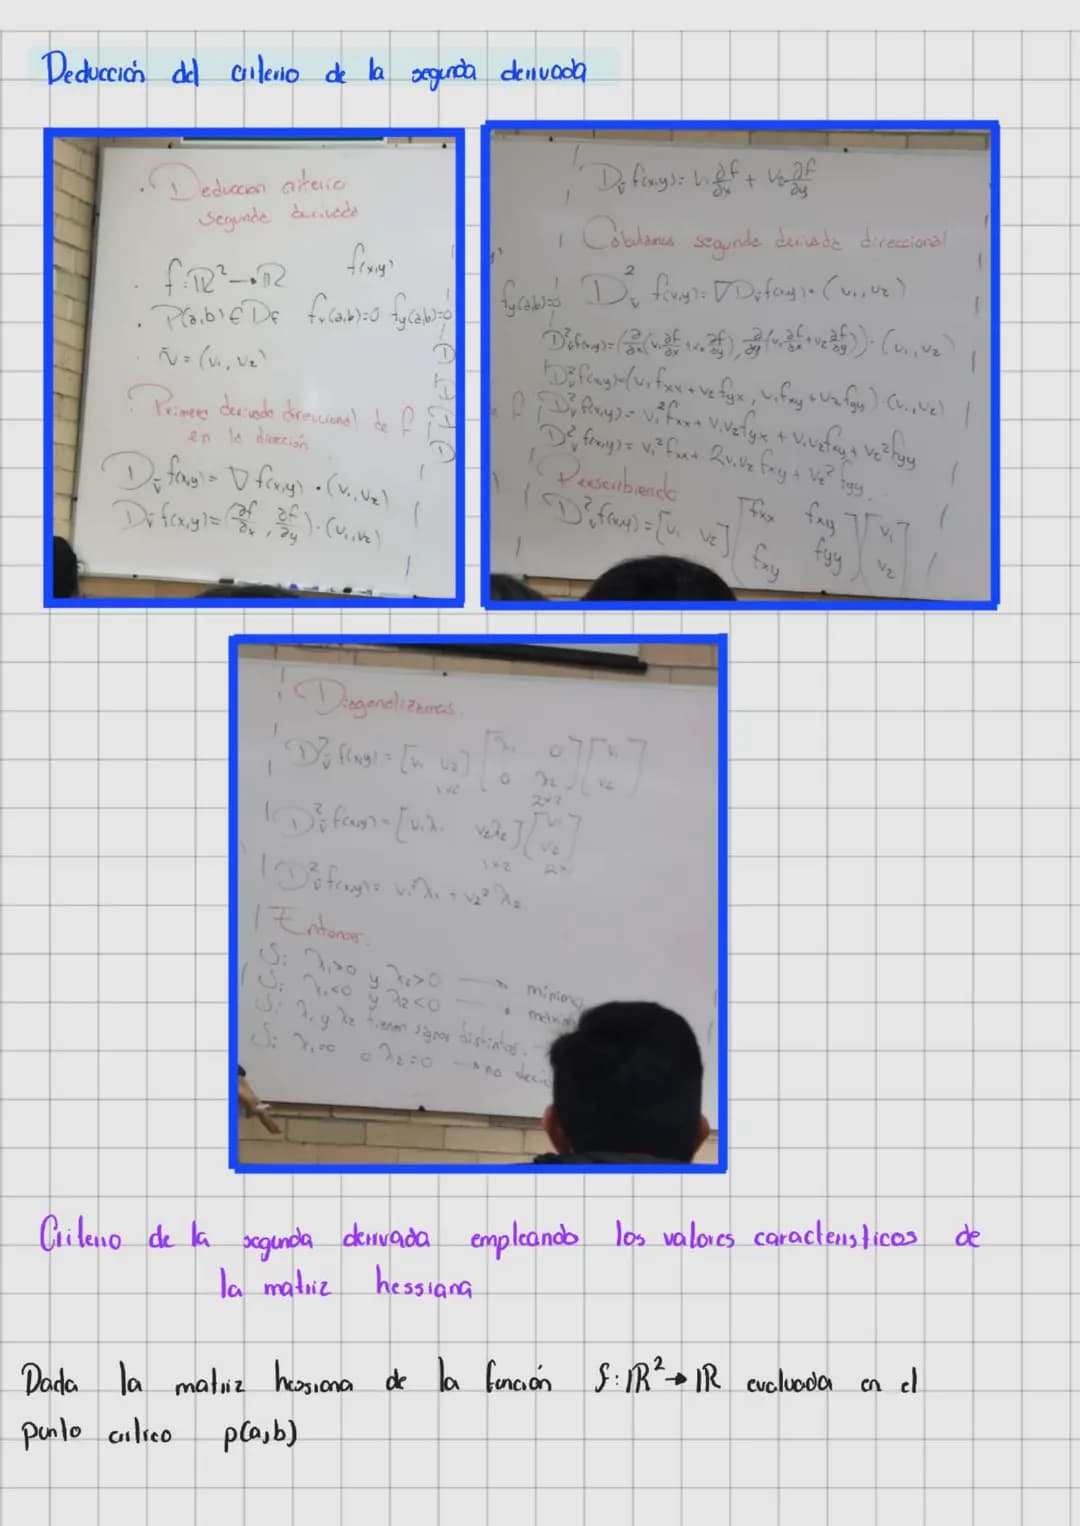 Deducción del criterio de la segunda derivada
Deduccion criterio
segunda derivada
f:ℝ²→ℝ f(x,y)
P(a,b) ∈ Df fx(a,b)=0 fy(a,b)=0
v̄ = (v₁, v₂)
Primera derivada direccional de f
en la dirección
Dv̄ f(x,y) = ∇f(x,y) · (v₁, v₂)
Dv̄ f(x,y) = (∂f/∂x, ∂f/∂y) · (v₁, v₂)
Dv̄ f(x,y) = v₁ ∂f/∂x + v₂ ∂f/∂y
segunda derivada direccional
fy(a,b)=0 D²v̄ f(x,y) = ∇Dv̄ f(x,y) · (v₁, v₂)
D²v̄ f(x,y) = (∂/∂x (v₁ ∂f/∂x + v₂ ∂f/∂y), ∂/∂y (v₁ ∂f/∂x + v₂ ∂f/∂y)) · (v₁, v₂)
D²v̄ f(x,y) = (v₁fxx + v₂fyx, v₁fxy + v₂fyy) · (v₁, v₂)
D²v̄ f(x,y) = v₁²fxx + v₁v₂fyx + v₁v₂fxy + v₂²fyy
D²v̄ f(x,y) = v₁²fxx + 2v₁v₂fxy + v₂²fyy.
Reescribiendo
D²v̄ f(x,y) = [v₁ v₂] [fxx fxy; fxy fyy] [v₁; v₂]
Diagonalizamos.
D²v̄ f(x,y) = [v₁ v₂] [λ₁ 0; 0 λ₂] [v₁; v₂]
1x2 2x2
D²v̄ f(x,y) = [v₁λ₁ v₂λ₂] [v₁; v₂]
1x2
D²v̄ f(x,y) = v₁²λ₁ + v₂²λ₂.
Entonces.
Si λ₁>0 y λ₂>0 → mínimo
Si λ₁<0 y λ₂<0 →
Si λ₁ y λ₂ tienen signos distintos.
Si λ₁=0 o λ₂=0 → no
Criterio de la segunda derivada empleando los valores caracteristicos de
la matriz hessiana
Dada la matriz hessiana de la función f:ℝ²→ℝ evaluada en el
punto critico p(a,b)